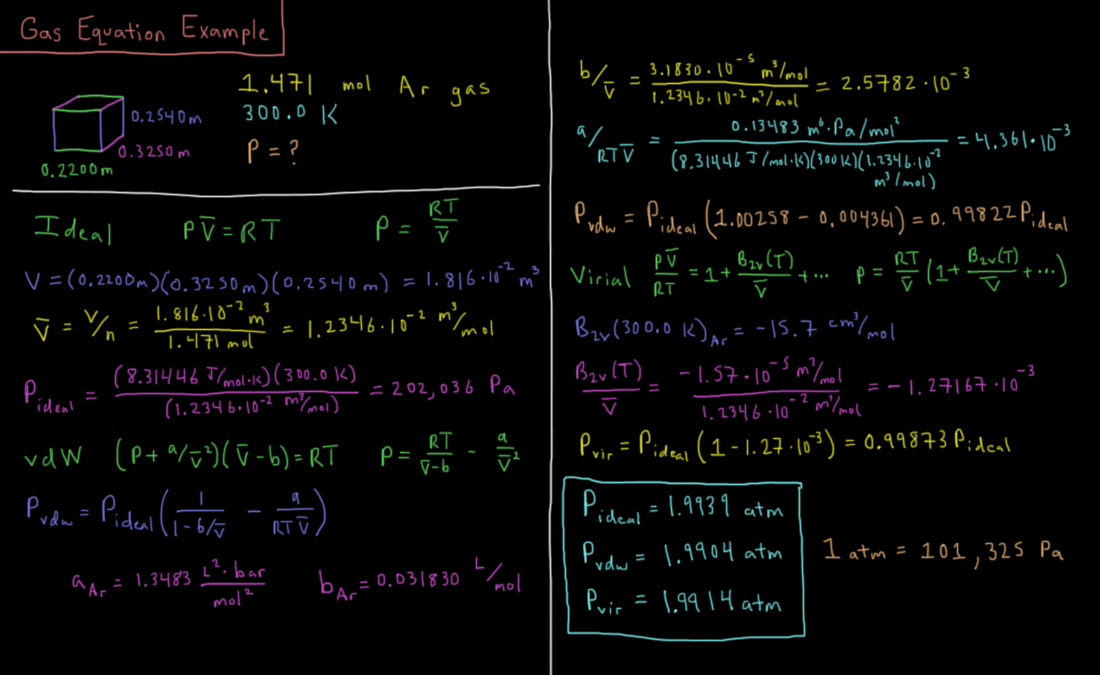 Gas Equation Example
1.471 mol Ar gas
0.2540m
300.0 K
0.3250m
P = ?
0.2200m
Ideal PV̅ = RT P = RT/V̅
V = (0.2200m)(0.3250m)(0.2540m) = 1.816·10⁻² m³
V̅ = V/n = 1.816·10⁻² m³/1.471 mol = 1.2346·10⁻² m³/mol
P_ideal = (8.31446 J/mol·K)(300.0 K)/(1.2346·10⁻² m³/mol) = 202,036 Pa
vdW (P + a/V̅²)(V̅-b) = RT P = RT/(V̅-b) - a/V̅²
P_vdw = P_ideal(1/(1-b/V̅) - a/RTV̅)
a_Ar = 1.3483 L²·bar/mol² b_Ar = 0.031830 L/mol
b/V̅ = 3.1830·10⁻⁵ m³/mol/1.2346·10⁻² m³/mol = 2.5782·10⁻³
a/RTV̅ = 0.13483 m⁶·Pa/mol²/(8.31446 J/mol·K)(300K)(1.2346·10⁻² m³/mol) = 4.361·10⁻³
P_vdw = P_ideal(1.00258 - 0.004361) = 0.99822 P_ideal
Virial PV̅/RT = 1 + B₂ᵥ(T)/V̅ + ... P = RT/V̅ (1 + B₂ᵥ(T)/V̅ + ...)
B₂ᵥ(300.0 K)_Ar = -15.7 cm³/mol
B₂ᵥ(T)/V̅ = -1.57·10⁻⁵ m³/mol/1.2346·10⁻² m³/mol = -1.27167·10⁻³
P_vir = P_ideal(1 - 1.27·10⁻³) = 0.99873 P_ideal
P_ideal = 1.9939 atm
P_vdw = 1.9904 atm
P_vir = 1.9914 atm
1 atm = 101,325 Pa